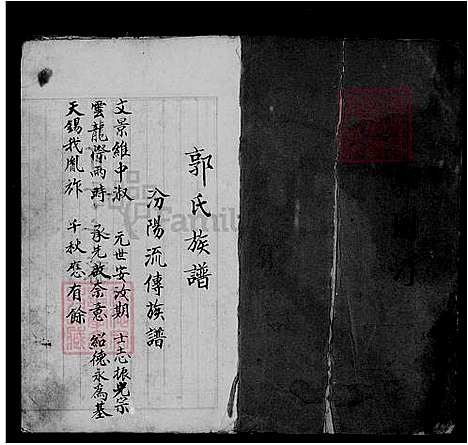 郭氏族譜
汾陽流傳族譜
文景維中淑 元世安汝期 士志振光宗
雲龍際雨時 承先啟奈意 紹德永為基
天錫我胤祚 千秋慈有餘